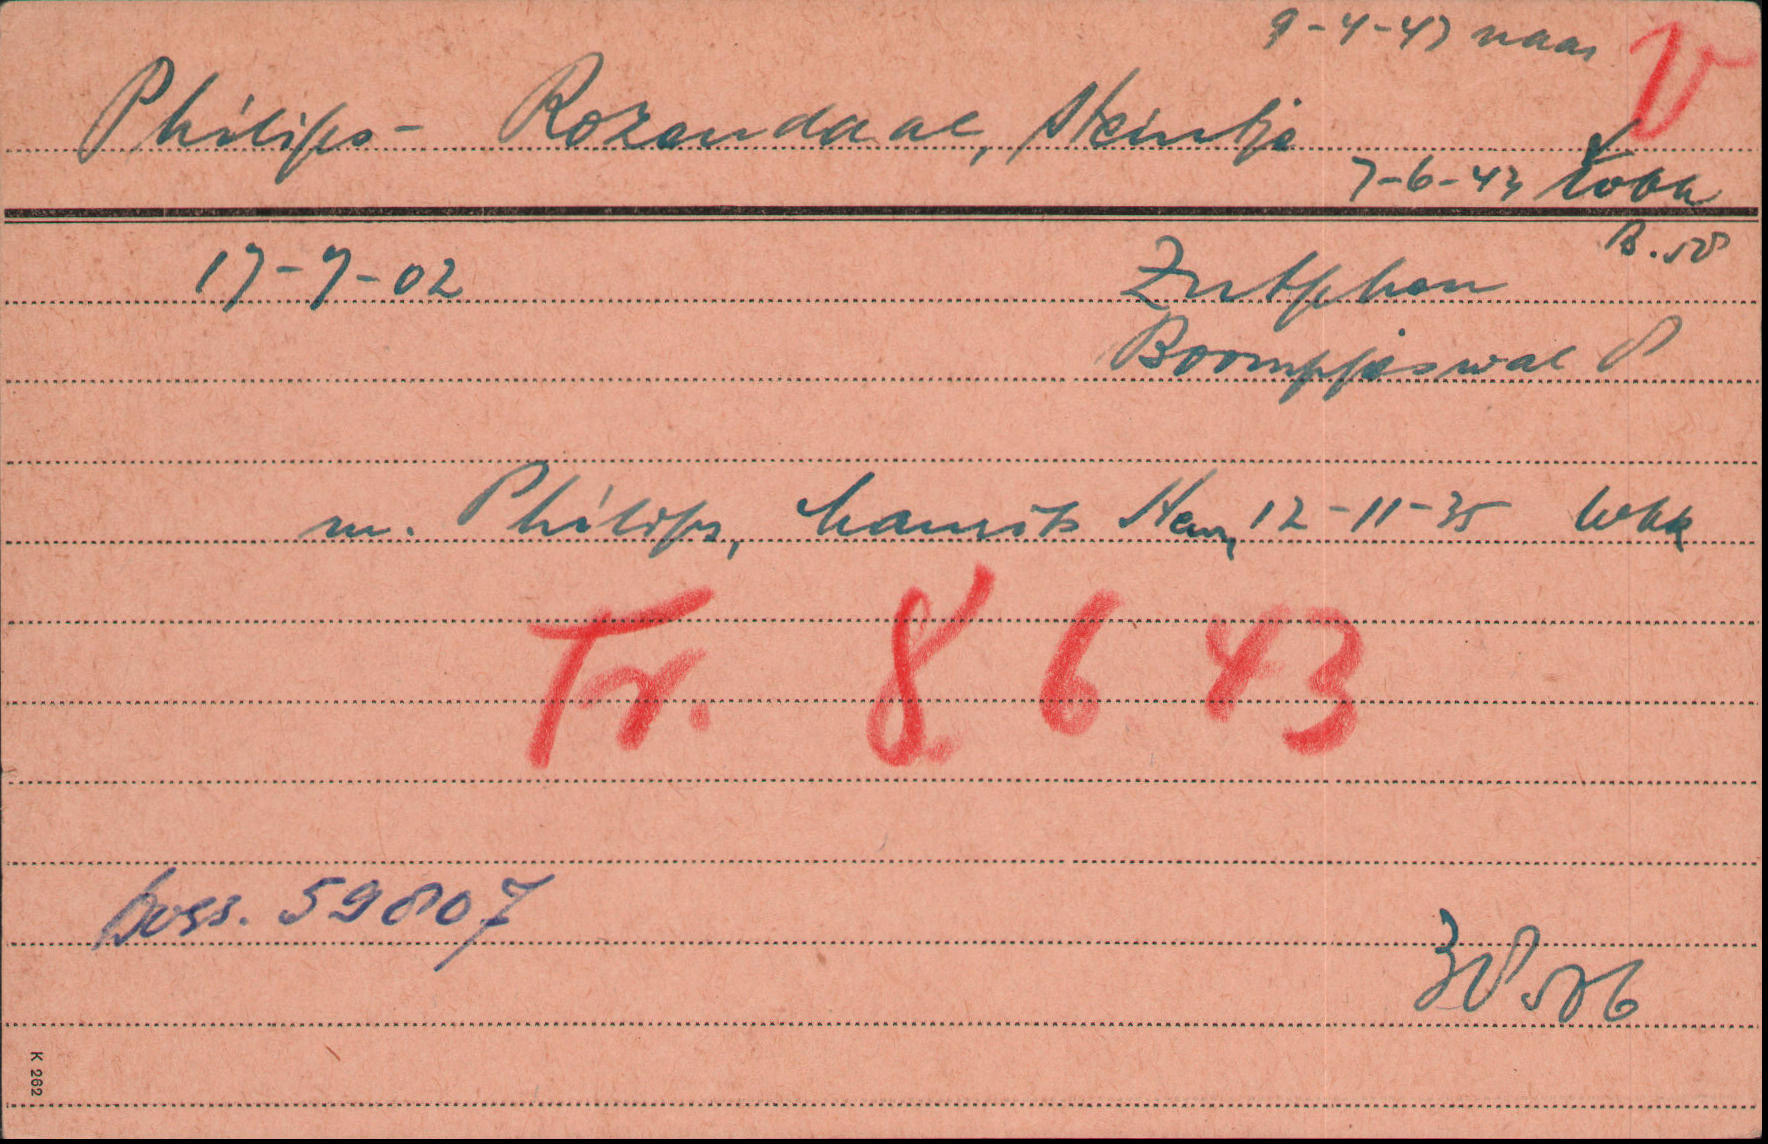 9-4-43 naar
V
Philips- Rozendaal, Heintje
7-6-43 Wbk
B. 58
17-7-02 Zutphen
Boompjeswal 8
m. Philips, Maurits Han, 12-11-35 Wbk
Tr. 8. 6 43
Doss. 59807
K 262